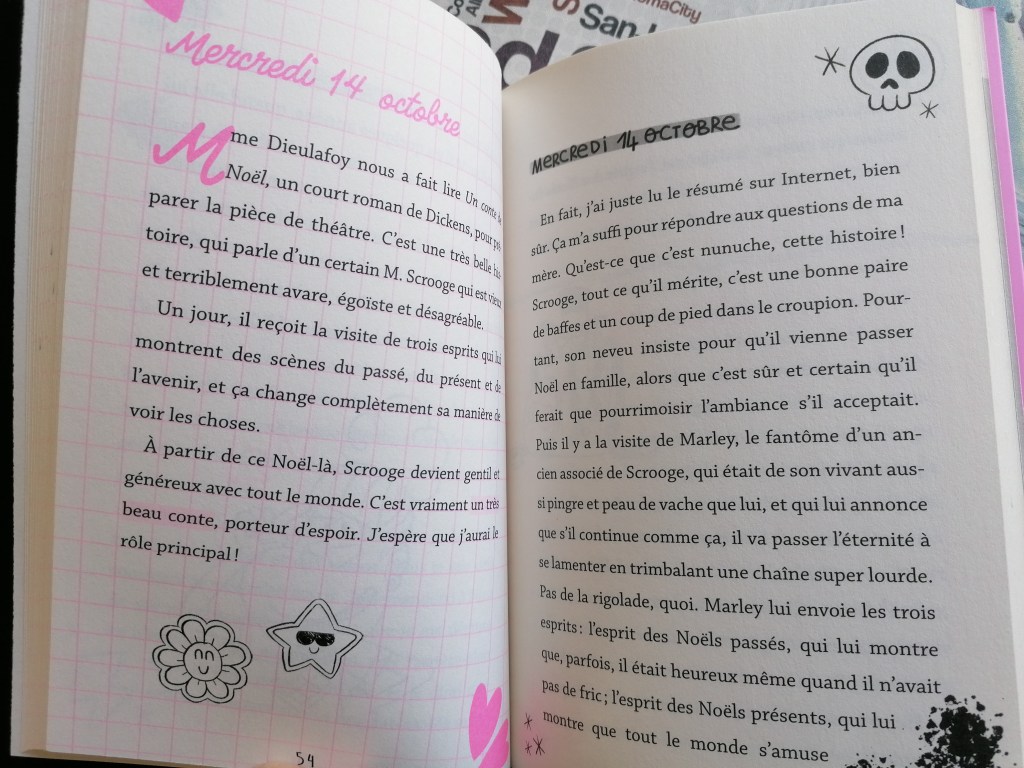 Mercredi 14 octobre
Mme Dieulafoy nous a fait lire Un conte de
Noël, un court roman de Dickens, pour pré-
parer la pièce de théâtre. C'est une très belle his-
toire, qui parle d'un certain M. Scrooge qui est vieux
et terriblement avare, égoïste et désagréable.
Un jour, il reçoit la visite de trois esprits qui lui
montrent des scènes du passé, du présent et de
l'avenir, et ça change complètement sa manière de
voir les choses.
À partir de ce Noël-là, Scrooge devient gentil et
généreux avec tout le monde. C'est vraiment un très
beau conte, porteur d'espoir. J'espère que j'aurai le
rôle principal !
54
omaCity
San
MERCREDI 14 OCTOBRE
En fait, j'ai juste lu le résumé sur Internet, bien
sûr. Ça m'a suffi pour répondre aux questions de ma
mère. Qu'est-ce que c'est nunuche, cette histoire !
Scrooge, tout ce qu'il mérite, c'est une bonne paire
de baffes et un coup de pied dans le croupion. Pour-
tant, son neveu insiste pour qu'il vienne passer
Noël en famille, alors que c'est sûr et certain qu'il
ferait que pourrimoisir l'ambiance s'il acceptait.
Puis il y a la visite de Marley, le fantôme d'un an-
cien associé de Scrooge, qui était de son vivant aus-
si pingre et peau de vache que lui, et qui lui annonce
que s'il continue comme ça, il va passer l'éternité à
se lamenter en trimbalant une chaîne super lourde.
Pas de la rigolade, quoi. Marley lui envoie les trois
esprits : l'esprit des Noëls passés, qui lui montre
que, parfois, il était heureux même quand il n'avait
pas de fric ; l'esprit des Noëls présents, qui lui
montre que tout le monde s'amuse